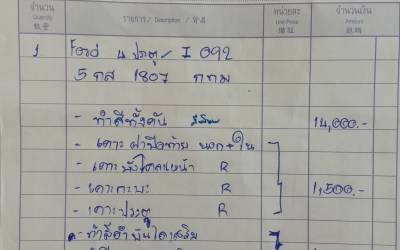 จำนวน รายการ / Description / 项目 หน่วยละ จำนวนเงิน
Quantity Unit Price Amount
数量 金额
1 Ford 4 ประตู / I 092
5 กส 1807 กทม
- ทำสีทั้งคัน 14,000.-
- เคาะฝาปิดท้าย นอก+ใน
- เคาะบังโคลนหน้า R
- เคาะกะบะ R 1,500.-
- เคาะประตู R